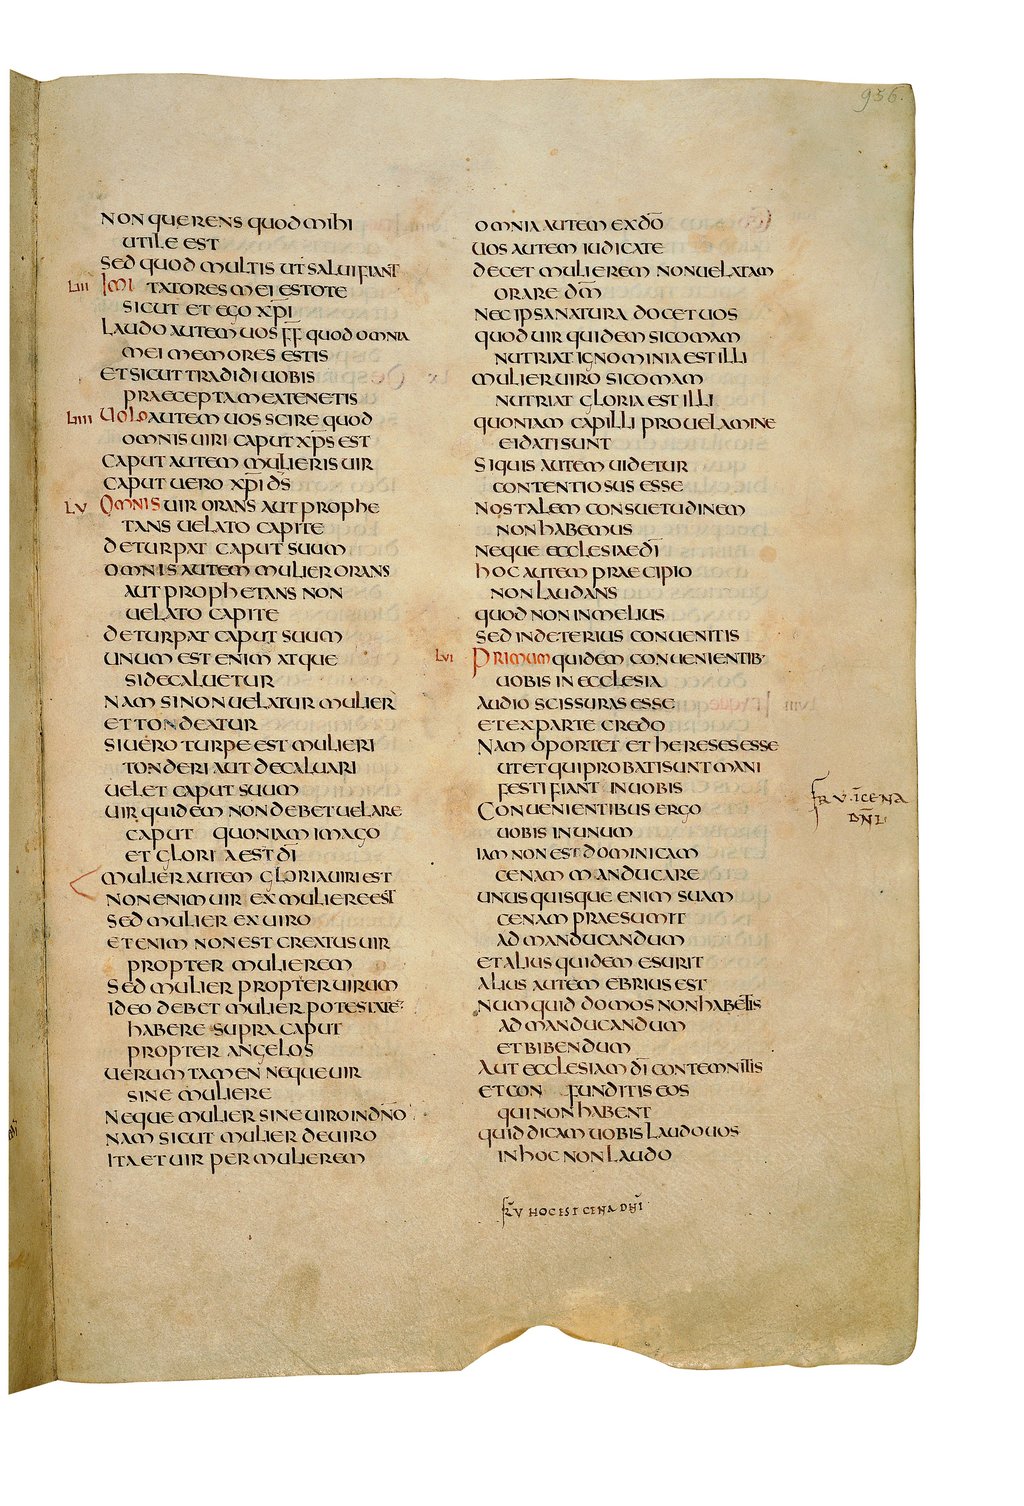 956.
NON QUERENS QUOD MIHI
UTILE EST
SED QUOD MULTIS UT SALUI FIANT
LIII IMITATORES MEI ESTOTE
SICUT ET EGO XPI
LAUDO AUTEM UOS FF QUOD OMNIA
MEI MEMORES ESTIS
ET SICUT TRADIDI UOBIS
PRAECEPTA MEA TENETIS
LIIII UOLO AUTEM UOS SCIRE QUOD
OMNIS UIRI CAPUT XPS EST
CAPUT AUTEM MULIERIS UIR
CAPUT UERO XPI DS
LV OMNIS UIR ORANS AUT PROPHE
TANS UELATO CAPITE
DETURPAT CAPUT SUUM
OMNIS AUTEM MULIER ORANS
AUT PROPHETANS NON
UELATO CAPITE
DETURPAT CAPUT SUUM
UNUM EST ENIM ATQUE
SI DECALUETUR
NAM SI NON UELATUR MULIER
ET TONDEATUR
SI UERO TURPE EST MULIERI
TONDERI AUT DECALUARI
UELET CAPUT SUUM
UIR QUIDEM NON DEBET UELARE
CAPUT QUONIAM IMAGO
ET GLORIA EST DI
MULIER AUTEM GLORIA UIRI EST
NON ENIM UIR EX MULIERE EST
SED MULIER EX UIRO
ETENIM NON EST CREATUS UIR
PROPTER MULIEREM
SED MULIER PROPTER UIRUM
IDEO DEBET MULIER POTESTATE
HABERE SUPRA CAPUT
PROPTER ANGELOS
UERUM TAMEN NEQUE UIR
SINE MULIERE
NEQUE MULIER SINE UIRO IN DNO
NAM SICUT MULIER DE UIRO
ITA ET UIR PER MULIEREM
OMNIA AUTEM EX DO
UOS AUTEM IUDICATE
DECET MULIEREM NON UELATAM
ORARE DM
NEC IPSA NATURA DOCET UOS
QUOD UIR QUIDEM SI COMAM
NUTRIAT IGNOMINIA EST ILLI
MULIER UIRO SI COMAM
NUTRIAT GLORIA EST ILLI
QUONIAM CAPILLI PRO UELAMINE
EI DATI SUNT
SI QUIS AUTEM UIDETUR
CONTENTIOSUS ESSE
NOS TALEM CONSUETUDINEM
NON HABEMUS
NEQUE ECCLESIAE DI
HOC AUTEM PRAECIPIO
NON LAUDANS
QUOD NON IN MELIUS
SED IN DETERIUS CONUENITIS
LVI PRIMUM QUIDEM CONUENIENTIB·
UOBIS IN ECCLESIA
AUDIO SCISSURAS ESSE
ET EX PARTE CREDO
NAM OPORTET ET HERESES ESSE
UT ET QUI PROBATI SUNT MANI
FESTI FIANT IN UOBIS
CONUENIENTIBUS ERGO
UOBIS IN UNUM
IAM NON EST DOMINICAM
CENAM MANDUCARE
UNUS QUISQUE ENIM SUAM
CENAM PRAESUMIT
AD MANDUCANDUM
ET ALIUS QUIDEM ESURIT
ALIUS AUTEM EBRIUS EST
NUMQUID DOMOS NON HABETIS
AD MANDUCANDUM
ET BIBENDUM
AUT ECCLESIAM DI CONTEMNITIS
ET CONFUNDITIS EOS
QUI NON HABENT
QUID DICAM UOBIS LAUDO UOS
IN HOC NON LAUDO
CENA
DNI
HOC EST CENA DNI